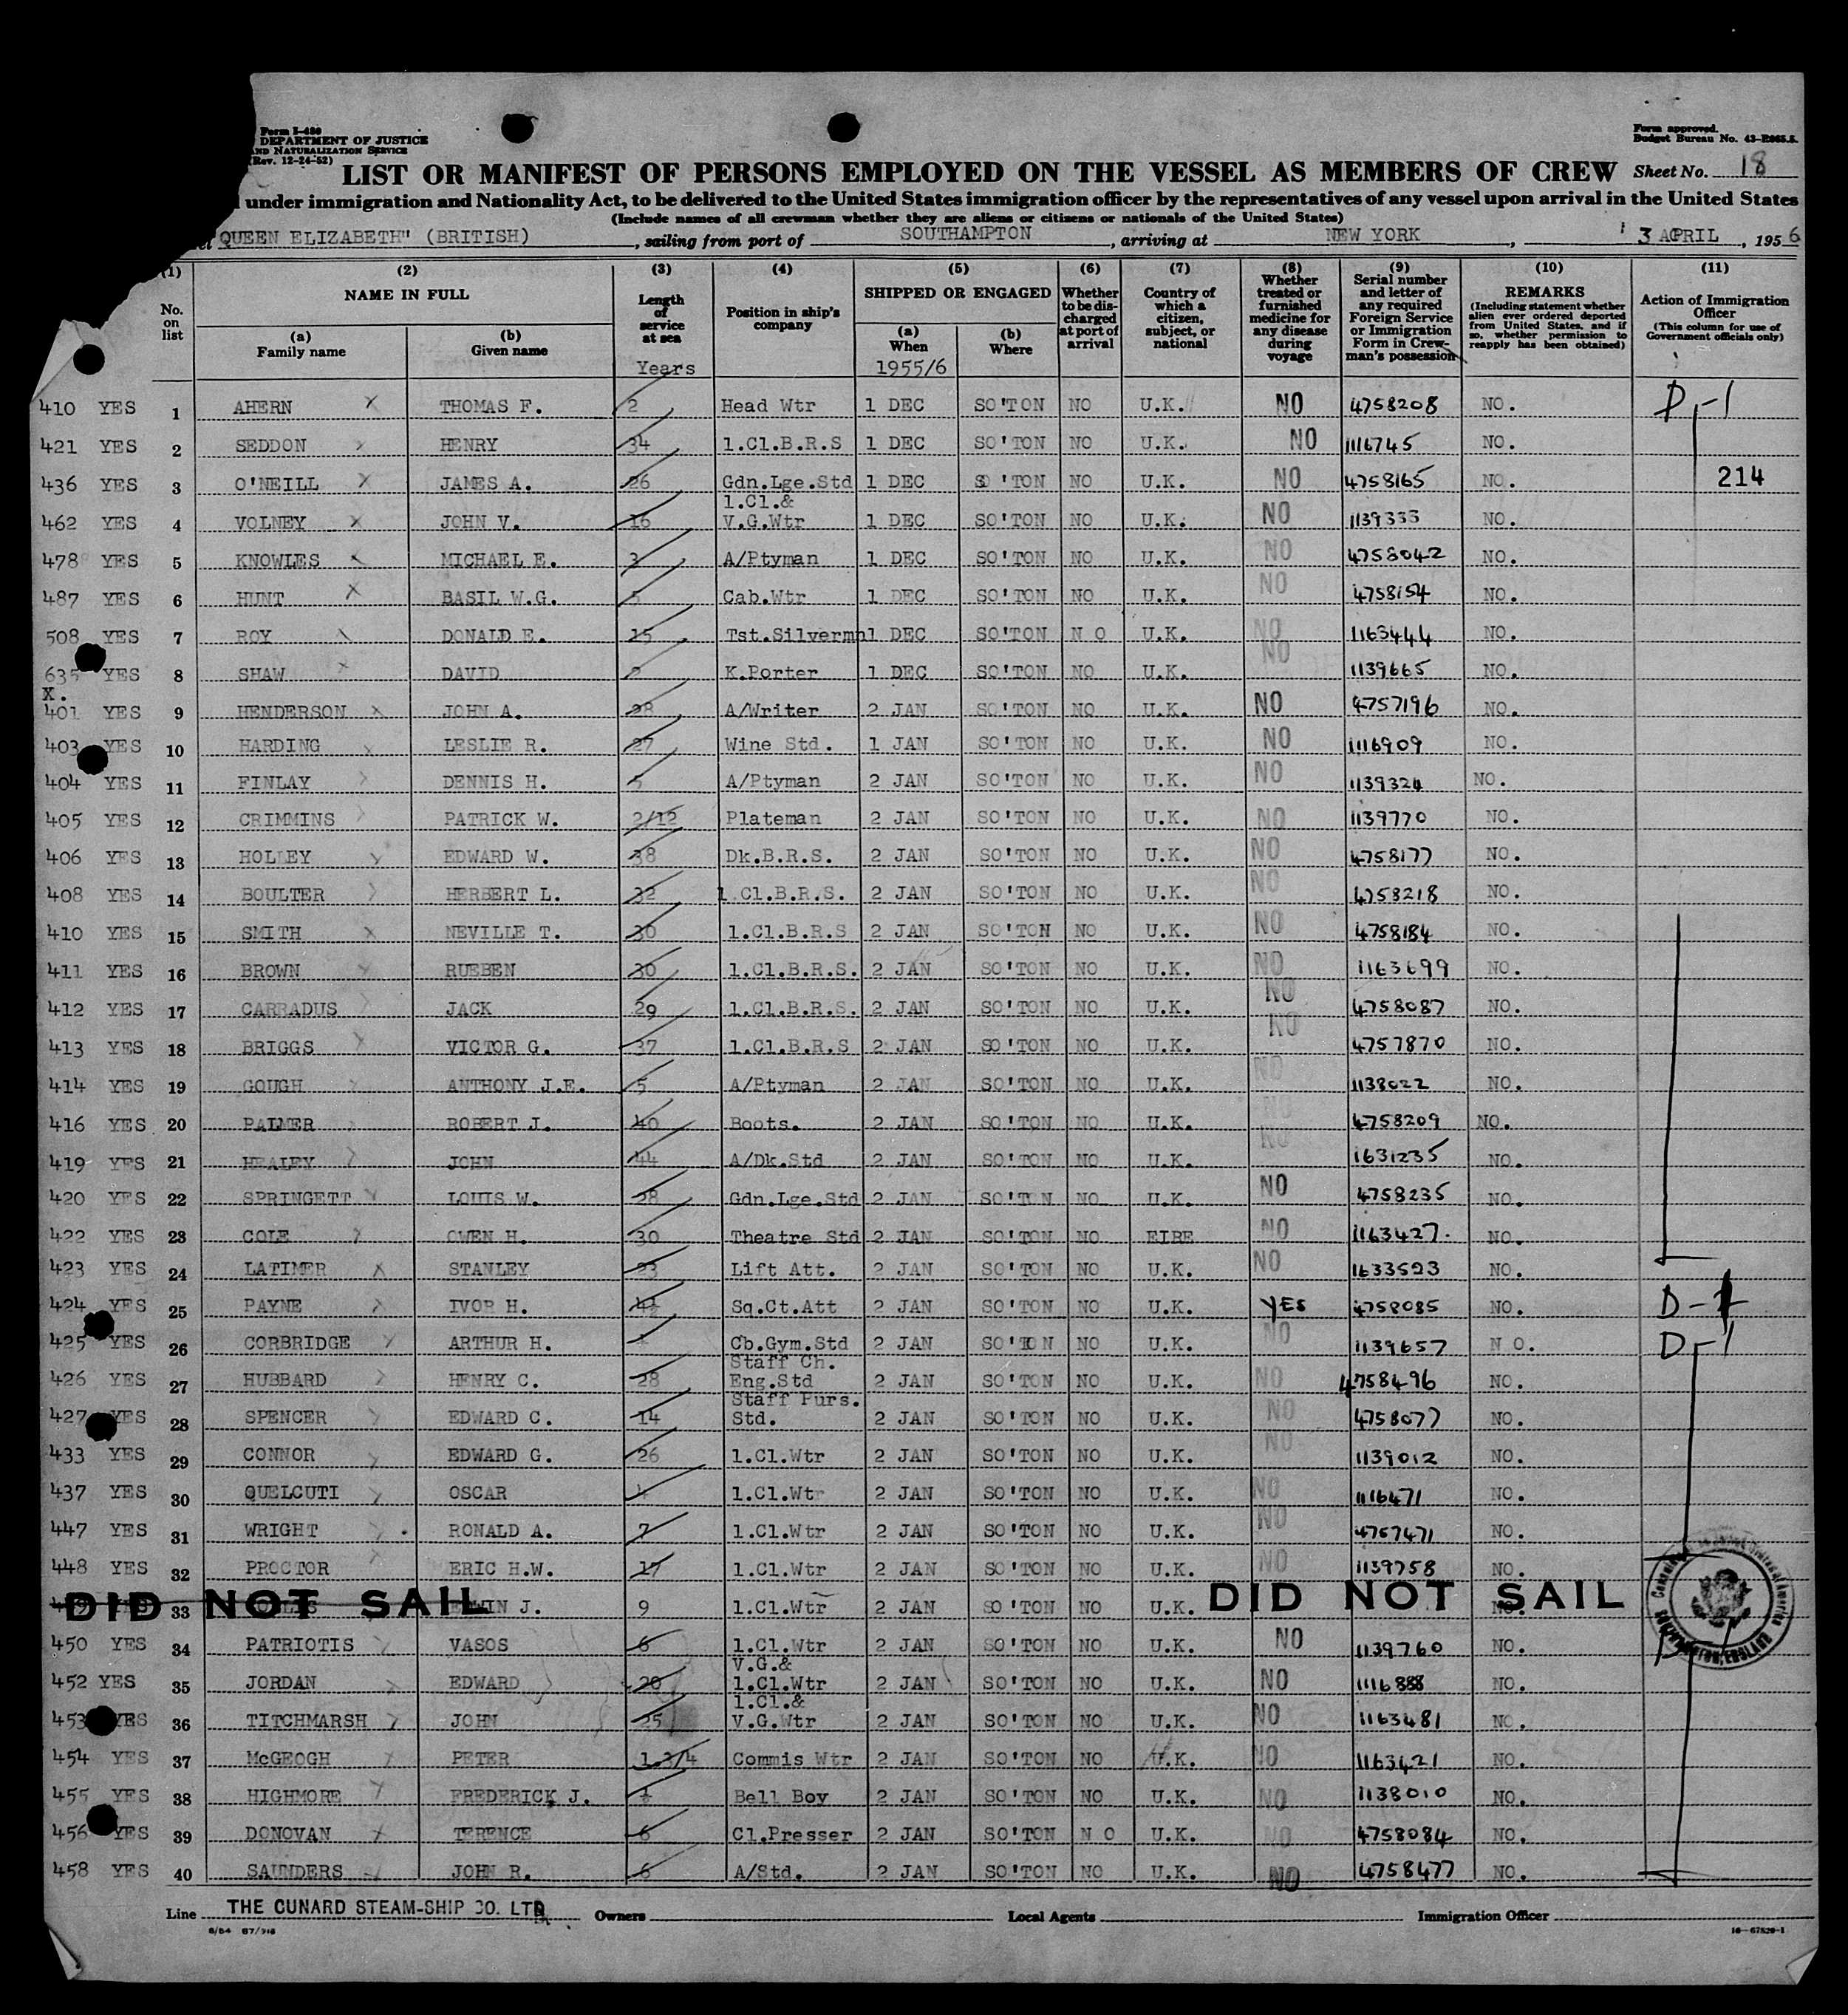 Form I-480
DEPARTMENT OF JUSTICE
AND NATURALIZATION SERVICE
(Rev. 12-24-52)
Form approved.
Budget Bureau No. 43-R065.5.
LIST OR MANIFEST OF PERSONS EMPLOYED ON THE VESSEL AS MEMBERS OF CREW
Sheet No. 18
under immigration and Nationality Act, to be delivered to the United States immigration officer by the representatives of any vessel upon arrival in the United States
(Include names of all crewman whether they are aliens or citizens or nationals of the United States)
QUEEN ELIZABETH" (BRITISH), sailing from port of SOUTHAMPTON, arriving at NEW YORK, 3 APRIL, 1956
(1) No. on list
(2) NAME IN FULL (a) Family name (b) Given name
(3) Length of service at sea Years
(4) Position in ship's company
(5) SHIPPED OR ENGAGED (a) When 1955/6 (b) Where
(6) Whether to be discharged at port of arrival
(7) Country of which a citizen, subject, or national
(8) Whether treated or furnished medicine for any disease during voyage
(9) Serial number and letter of any required Foreign Service or Immigration Form in Crewman's possession
(10) REMARKS (Including statement whether alien ever ordered deported from United States, and if so, whether permission to reapply has been obtained)
(11) Action of Immigration Officer (This column for use of Government officials only)
410 YES 1 AHERN X THOMAS F. 2 Head Wtr 1 DEC SO'TON NO U.K. NO 4758208 NO. D-1
421 YES 2 SEDDON X HENRY 34 1.Cl.B.R.S 1 DEC SO'TON NO U.K. NO 1116745 NO.
436 YES 3 O'NEILL X JAMES A. 26 Gdn.Lge.Std 1 DEC SO'TON NO U.K. NO 4758165 NO. 214
462 YES 4 VOLNEY X JOHN V. 16 1.Cl.& V.G.Wtr 1 DEC SO'TON NO U.K. NO 1139333 NO.
478 YES 5 KNOWLES X MICHAEL E. 3 A/Ptyman 1 DEC SO'TON NO U.K. NO 4758042 NO.
487 YES 6 HUNT X BASIL W.G. 5 Cab.Wtr 1 DEC SO'TON NO U.K. NO 4758154 NO.
508 YES 7 ROY X DONALD E. 15 Tst.Silvermn 1 DEC SO'TON N O U.K. NO 1163444 NO.
635 YES 8 SHAW X DAVID K.Porter 1 DEC SO'TON NO U.K. NO 1139665 NO.
X.
401 YES 9 HENDERSON X JOHN A. 28 A/Writer 2 JAN SO'TON NO U.K. NO 4757196 NO.
403 YES 10 HARDING X LESLIE R. 27 Wine Std. 1 JAN SO'TON NO U.K. NO 1116909 NO.
404 YES 11 FINLAY X DENNIS H. 5 A/Ptyman 2 JAN SO'TON NO U.K. NO 1139324 NO.
405 YES 12 CRIMMINS X PATRICK W. 2/12 Plateman 2 JAN SO'TON NO U.K. NO 1139770 NO.
406 YES 13 HOLLEY X EDWARD W. 38 Dk.B.R.S. 2 JAN SO'TON NO U.K. NO 4758177 NO.
408 YES 14 BOULTER X HERBERT L. 32 1.Cl.B.R.S. 2 JAN SO'TON NO U.K. NO 4758218 NO.
410 YES 15 SMITH X NEVILLE T. 30 1.Cl.B.R.S 2 JAN SO'TON NO U.K. NO 4758184 NO.
411 YES 16 BROWN X RUEBEN 30 1.Cl.B.R.S. 2 JAN SO'TON NO U.K. NO 1163699 NO.
412 YES 17 CARRADUS X JACK 29 1.Cl.B.R.S. 2 JAN SO'TON NO U.K. NO 4758087 NO.
413 YES 18 BRIGGS X VICTOR G. 37 1.Cl.B.R.S 2 JAN SO'TON NO U.K. NO 4757870 NO.
414 YES 19 GOUGH X ANTHONY J.E. 5 A/Ptyman 2 JAN SO'TON NO U.K. NO 1138022 NO.
416 YES 20 PALMER X ROBERT J. 40 Boots. 2 JAN SO'TON NO U.K. NO 4758209 NO.
419 YES 21 HEALEY X JOHN 44 A/Dk.Std 2 JAN SO'TON NO U.K. NO 1631235 NO.
420 YES 22 SPRINGETT X LOUIS W. 28 Gdn.Lge.Std 2 JAN SO'T N NO U.K. NO 4758235 NO.
422 YES 23 COLE X OWEN H. 30 Theatre Std 2 JAN SO'TON NO EIRE NO 1163427. NO.
423 YES 24 LATIMER X STANLEY 23 Lift Att. 2 JAN SO'TON NO U.K. NO 1633523 NO.
424 YES 25 PAYNE X IVOR H. 4½ Sq.Ct.Att 2 JAN SO'TON NO U.K. YES 4758085 NO. D-1
425 YES 26 CORBRIDGE X ARTHUR H. Cb.Gym.Std 2 JAN SO'TON NO U.K. NO 1139657 N O. D-1
426 YES 27 HUBBARD X HENRY C. 28 Staff Ch. Eng.Std 2 JAN SO'TON NO U.K. NO 4758496 NO.
427 YES 28 SPENCER X EDWARD C. 14 Staff Purs. Std. 2 JAN SO'TON NO U.K. NO 4758077 NO.
433 YES 29 CONNOR X EDWARD G. 26 1.Cl.Wtr 2 JAN SO'TON NO U.K. NO 1139012 NO.
437 YES 30 QUELCUTI X OSCAR 4 1.Cl.Wtr 2 JAN SO'TON NO U.K. NO 1116471 NO.
447 YES 31 WRIGHT X RONALD A. 7 1.Cl.Wtr 2 JAN SO'TON NO U.K. NO 4757471 NO.
448 YES 32 PROCTOR X ERIC H.W. 17 1.Cl.Wtr 2 JAN SO'TON NO U.K. NO 1139758 NO.
DID NOT SAIL 33 J. 9 1.Cl.Wtr 2 JAN SO'TON NO U.K. DID NOT SAIL NO.
450 YES 34 PATRIOTIS X VASOS 6 1.Cl.Wtr 2 JAN SO'TON NO U.K. NO 1139760 NO.
452 YES 35 JORDAN X EDWARD 20 V.G.& 1.Cl.Wtr 2 JAN SO'TON NO U.K. NO 1116888 NO.
453 YES 36 TITCHMARSH X JOHN 25 1.Cl.& V.G.Wtr 2 JAN SO'TON NO U.K. NO 1163481 NO.
454 YES 37 McGEOGH X PETER 1.3/4 Commis Wtr 2 JAN SO'TON NO U.K. NO 1163421 NO.
455 YES 38 HIGHMORE X FREDERICK J. Bell Boy 2 JAN SO'TON NO U.K. NO 1138010 NO.
456 YES 39 DONOVAN X TERENCE 6 Cl.Presser 2 JAN SO'TON N O U.K. NO 4758084 NO.
458 YES 40 SAUNDERS X JOHN R. 6 A/Std. 2 JAN SO'TON NO U.K. NO 4758477 NO.
Line THE CUNARD STEAM-SHIP CO. LTD Owners Local Agents Immigration Officer
16-67820-1